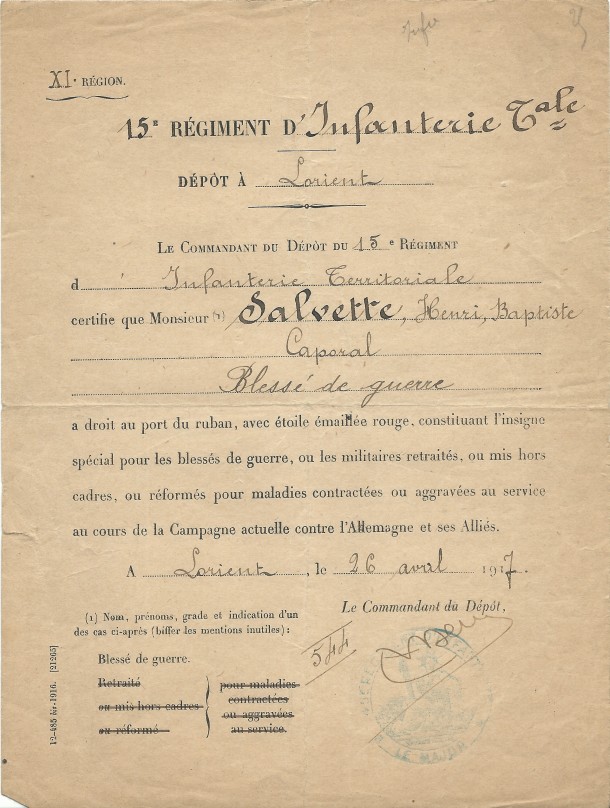 XIe RÉGION.
15e RÉGIMENT D'Infanterie Tale
DÉPÔT À Lorient
LE COMMANDANT DU DÉPÔT DU 15e RÉGIMENT
d' Infanterie Territoriale
certifie que Monsieur (1) Salvette, Henri, Baptiste
Caporal
Blessé de guerre
a droit au port du ruban, avec étoile émaillée rouge, constituant l'insigne
spécial pour les blessés de guerre, ou les militaires retraités, ou mis hors
cadres, ou réformés pour maladies contractées ou aggravées au service
au cours de la Campagne actuelle contre l'Allemagne et ses Alliés.
A Lorient, le 26 avril 1917.
Le Commandant du Dépôt,
(1) Nom, prénoms, grade et indication d'un
des cas ci-après (biffer les mentions inutiles) :
544
Blessé de guerre.
Retraité
ou mis hors cadres
ou réformé
pour maladies
contractées
ou aggravées
au service.
LE MAJOR
12-485 bis-1916. [21265]